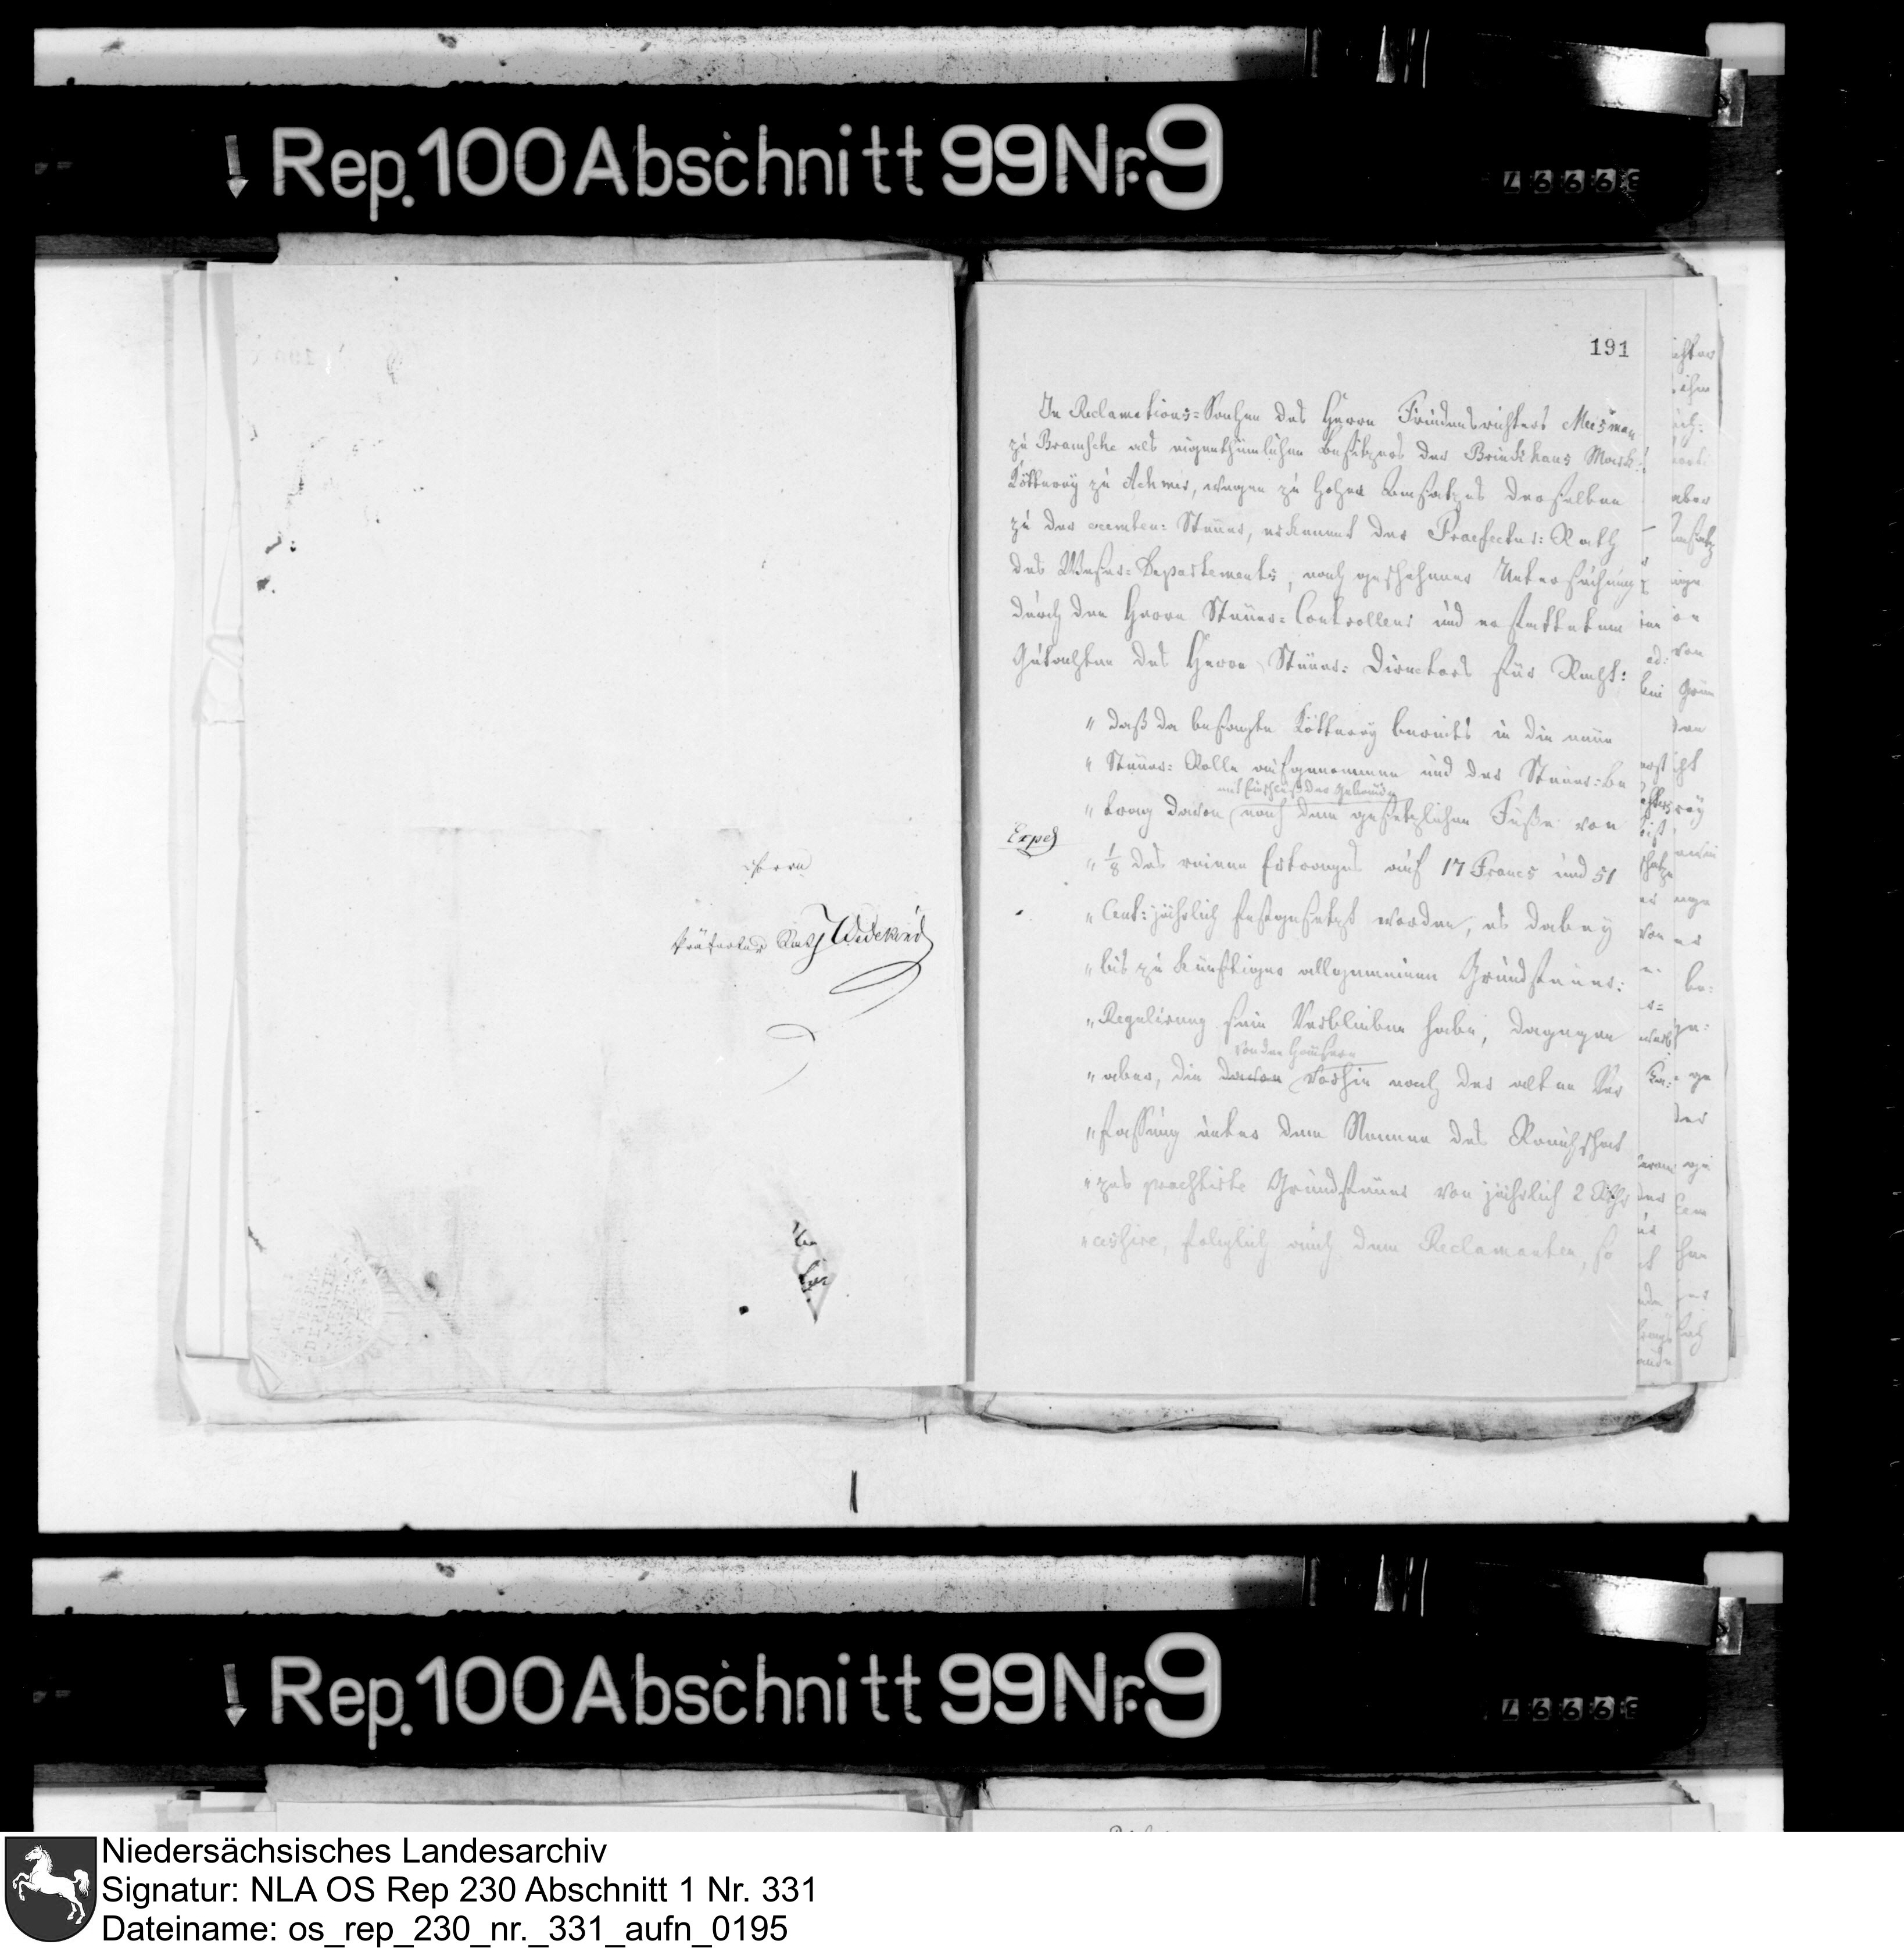 Rep. 100 Abschnitt 99 Nr. 9
Herrn
Präfectur Rath Wedekind
191
In Reclamations=Sachen des Herrn Friedensrichters Meisman
zu Bramsche als eigenthümlichen Besitzers der Brinkhaus Mark:
Kötterey zu Achmer, wegen zu hohen Ansatzes derselben
zu der Steuer, erkennt der Praefectur: Rath
des Weser=Departements, nach geschehener Untersuchung
durch den Herrn Steuer=Controlleur und erstattetem
Gutachten des Herrn Steuer: Directors für Recht:
" daß da besagte Kötterey bereits in die neue
" Steuer: Rolle aufgenommen und der Steuer: Be
mit Einschluß der Gebäude
" trag davon nach dem gesetzlichen Fuße von
" 1/8 des reinen Ertrages auf 17 Francs und 51
" Cent: jährlich festgesetzt worden, es dabey
" bis zu künftiger allgemeinen Grundsteuer:
" Regulirung sein Verbleiben habe, dagegen
von den Häusern
" aber, die davon vorhin nach der alten Ver
" fassung unter dem Namen des Rauchschat
" zes Grundsteuer von jährlich 2 Rthr
" cessire, folglich auch dem Reclamanten, so
Rep. 100 Abschnitt 99 Nr. 9
Niedersächsisches Landesarchiv
Signatur: NLA OS Rep 230 Abschnitt 1 Nr. 331
Dateiname: os_rep_230_nr._331_aufn_0195